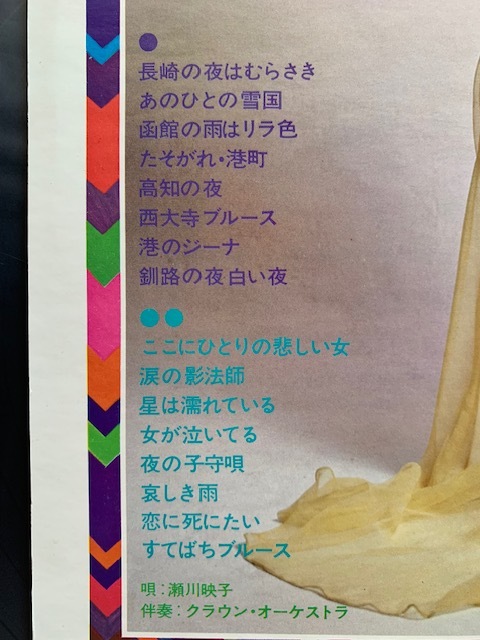 ●
長崎の夜はむらさき
あのひとの雪国
函館の雨はリラ色
たそがれ・港町
高知の夜
西大寺ブルース
港のジーナ
釧路の夜白い夜
●●
ここにひとりの悲しい女
涙の影法師
星は濡れている
女が泣いてる
夜の子守唄
哀しき雨
恋に死にたい
すてばちブルース
唄：瀬川映子
伴奏：クラウン・オーケストラ